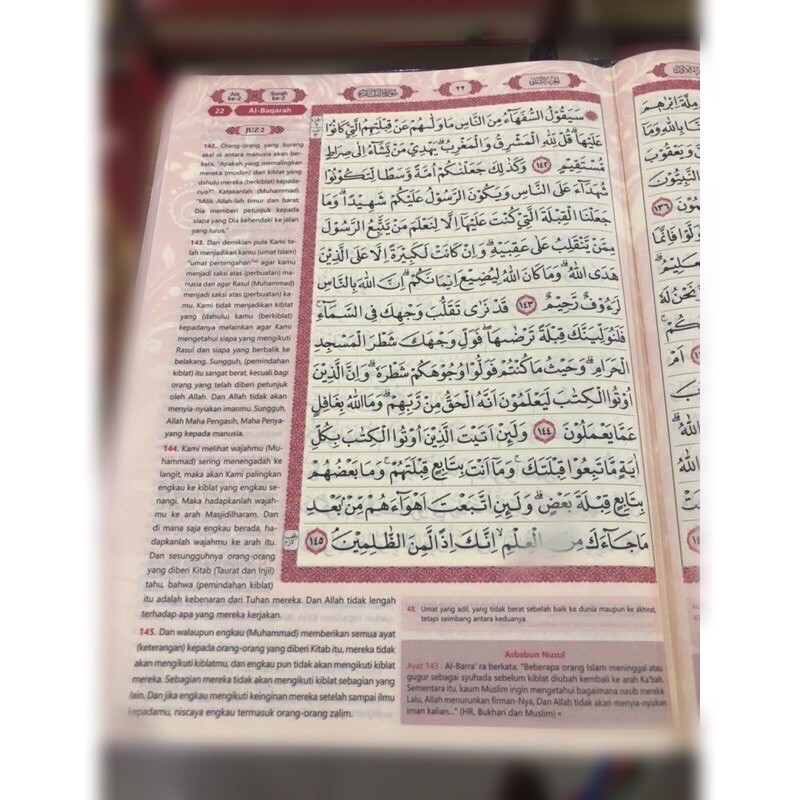 Juz ke-2
Surah ke-2
22
Al-Baqarah
JUZ 2
٢٢
142. Orang-orang yang kurang
akal di antara manusia akan ber-
kata, "Apakah yang memalingkan
mereka (muslim) dari kiblat yang
dahulu mereka (berkiblat) kepada-
nya?" Katakanlah (Muhammad),
"Milik Allah-lah timur dan barat;
Dia memberi petunjuk kepada
siapa yang Dia kehendaki ke jalan
yang lurus."
143. Dan demikian pula Kami te-
lah menjadikan kamu (umat Islam)
"umat pertengahan" agar kamu
menjadi saksi atas (perbuatan) ma-
nusia dan agar Rasul (Muhammad)
menjadi saksi atas (perbuatan) ka-
mu. Kami tidak menjadikan kiblat
yang (dahulu) kamu (berkiblat)
kepadanya melainkan agar Kami
mengetahui siapa yang mengikuti
Rasul dan siapa yang berbalik ke
belakang. Sungguh, (pemindahan
kiblat) itu sangat berat, kecuali bagi
orang yang telah diberi petunjuk
oleh Allah. Dan Allah tidak akan
menyia-nyiakan imanmu. Sungguh,
Allah Maha Pengasih, Maha Penya-
yang kepada manusia.
144. Kami melihat wajahmu (Mu-
hammad) sering menengadah ke
langit, maka akan Kami palingkan
engkau ke kiblat yang engkau se-
nangi. Maka hadapkanlah wajah-
mu ke arah Masjidilharam. Dan
di mana saja engkau berada, ha-
dapkanlah wajahmu ke arah itu.
Dan sesungguhnya orang-orang
yang diberi Kitab (Taurat dan Injil)
tahu, bahwa (pemindahan kiblat)
itu adalah kebenaran dari Tuhan mereka. Dan Allah tidak lengah
terhadap apa yang mereka kerjakan.
145. Dan walaupun engkau (Muhammad) memberikan semua ayat
(keterangan) kepada orang-orang yang diberi Kitab itu, mereka tidak
akan mengikuti kiblatmu, dan engkau pun tidak akan mengikuti kiblat
mereka. Sebagian mereka tidak akan mengikuti kiblat sebagian yang
lain. Dan jika engkau mengikuti keinginan mereka setelah sampai ilmu
kepadamu, niscaya engkau termasuk orang-orang zalim.
سَيَقُوْلُ السُّفَهَاۤءُ مِنَ النَّاسِ مَا وَلّٰىهُمْ عَنْ قِبْلَتِهِمُ الَّتِيْ كَانُوْا
عَلَيْهَاۗ قُلْ لِّلّٰهِ الْمَشْرِقُ وَالْمَغْرِبُۗ يَهْدِيْ مَنْ يَّشَاۤءُ اِلٰى صِرَاطٍ
مُّسْتَقِيْمٍ ١٤٢ وَكَذٰلِكَ جَعَلْنٰكُمْ اُمَّةً وَّسَطًا لِّتَكُوْنُوْا
شُهَدَاۤءَ عَلَى النَّاسِ وَيَكُوْنَ الرَّسُوْلُ عَلَيْكُمْ شَهِيْدًاۗ وَمَا
جَعَلْنَا الْقِبْلَةَ الَّتِيْ كُنْتَ عَلَيْهَآ اِلَّا لِنَعْلَمَ مَنْ يَّتَّبِعُ الرَّسُوْلَ
مِمَّنْ يَّنْقَلِبُ عَلٰى عَقِبَيْهِۗ وَاِنْ كَانَتْ لَكَبِيْرَةً اِلَّا عَلَى الَّذِيْنَ
هَدَى اللّٰهُۗ وَمَا كَانَ اللّٰهُ لِيُضِيْعَ اِيْمَانَكُمْۗ اِنَّ اللّٰهَ بِالنَّاسِ
لَرَءُوْفٌ رَّحِيْمٌ ١٤٣ قَدْ نَرٰى تَقَلُّبَ وَجْهِكَ فِى السَّمَاۤءِۚ
فَلَنُوَلِّيَنَّكَ قِبْلَةً تَرْضٰىهَاۖ فَوَلِّ وَجْهَكَ شَطْرَ الْمَسْجِدِ
الْحَرَامِۗ وَحَيْثُ مَا كُنْتُمْ فَوَلُّوْا وُجُوْهَكُمْ شَطْرَهٗۗ وَاِنَّ الَّذِيْنَ
اُوْتُوا الْكِتٰبَ لَيَعْلَمُوْنَ اَنَّهُ الْحَقُّ مِنْ رَّبِّهِمْۗ وَمَا اللّٰهُ بِغَافِلٍ
عَمَّا يَعْمَلُوْنَ ١٤٤ وَلَىِٕنْ اَتَيْتَ الَّذِيْنَ اُوْتُوا الْكِتٰبَ بِكُلِّ
اٰيَةٍ مَّا تَبِعُوْا قِبْلَتَكَۚ وَمَآ اَنْتَ بِتَابِعٍ قِبْلَتَهُمْۚ وَمَا بَعْضُهُمْ
بِتَابِعٍ قِبْلَةَ بَعْضٍۗ وَلَىِٕنِ اتَّبَعْتَ اَهْوَاۤءَهُمْ مِّنْۢ بَعْدِ
مَا جَاۤءَكَ مِنَ الْعِلْمِۙ اِنَّكَ اِذًا لَّمِنَ الظّٰلِمِيْنَ ١٤٥
48. Umat yang adil, yang tidak berat sebelah baik ke dunia maupun ke akhirat,
tetapi seimbang antara keduanya.
Asbabun Nuzul
Ayat 143 : Al-Barra' ra berkata, "Beberapa orang Islam meninggal atau
gugur sebagai syuhada sebelum kiblat diubah kembali ke arah Ka'bah.
Sementara itu, kaum Muslim ingin mengetahui bagaimana nasib mereka
Lalu, Allah menurunkan firman-Nya, Dan Allah tidak akan menyia-nyiakan
iman kalian..." (HR. Bukhari dan Muslim)